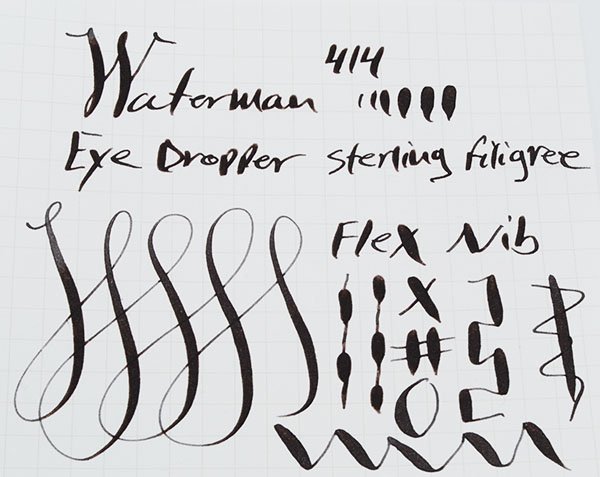 Waterman 414
Eye Dropper sterling filigree
Flex Nib